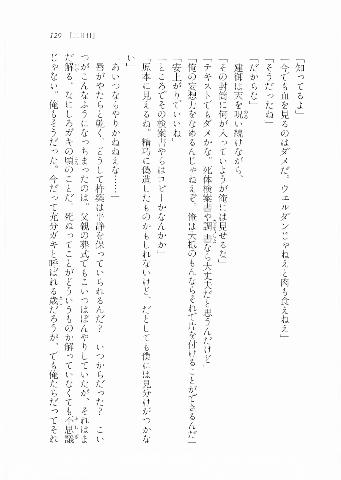 129 [二日目]
「知ってるよ」
「今でも血を見るのはダメだ。ウェルダンじゃねえと肉も食えねえ」
「そうだったね」
「だからな」
蓮御は天を呪い続けながら、
「その封筒に何が入っていようが俺には見せるな」
「テキストでもダメかな。死体検案書や調書なら大丈夫だと思うんだけど」
「俺の妄想力をなめるんじゃねえぞ。俺は大概のもんならそれで片を付けることができるんだ」
「安上がりでいいね」
「ところでその検案書やらはコピーかなんかか」
「原本に見えるね。精巧に偽造したものかもしれないけど、だとしても僕には見分けがつかな
い」
あいつならやりかねねえな……。
唇がやたらと乾く。どうして杵築は平静を保っていられるんだ？　いつからだった？　こい
つがこんなふうになっちまったのは。父親の葬式でもこいつはぼんやりしていたが、それはま
だ解る。なにしろガキの頃のことだ、死ぬってことがどういうものか解っていなくても不思議
じゃない。俺もそうだった。今だって充分ガキと呼ばれる歳だろうが、でも俺たちだってそれ